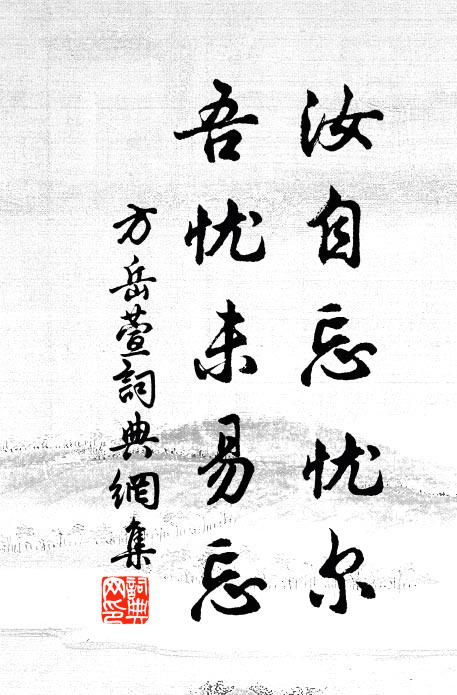 汝自忘忧尔
吾忧未易忘
方岳萱詞典網集
詞典网印